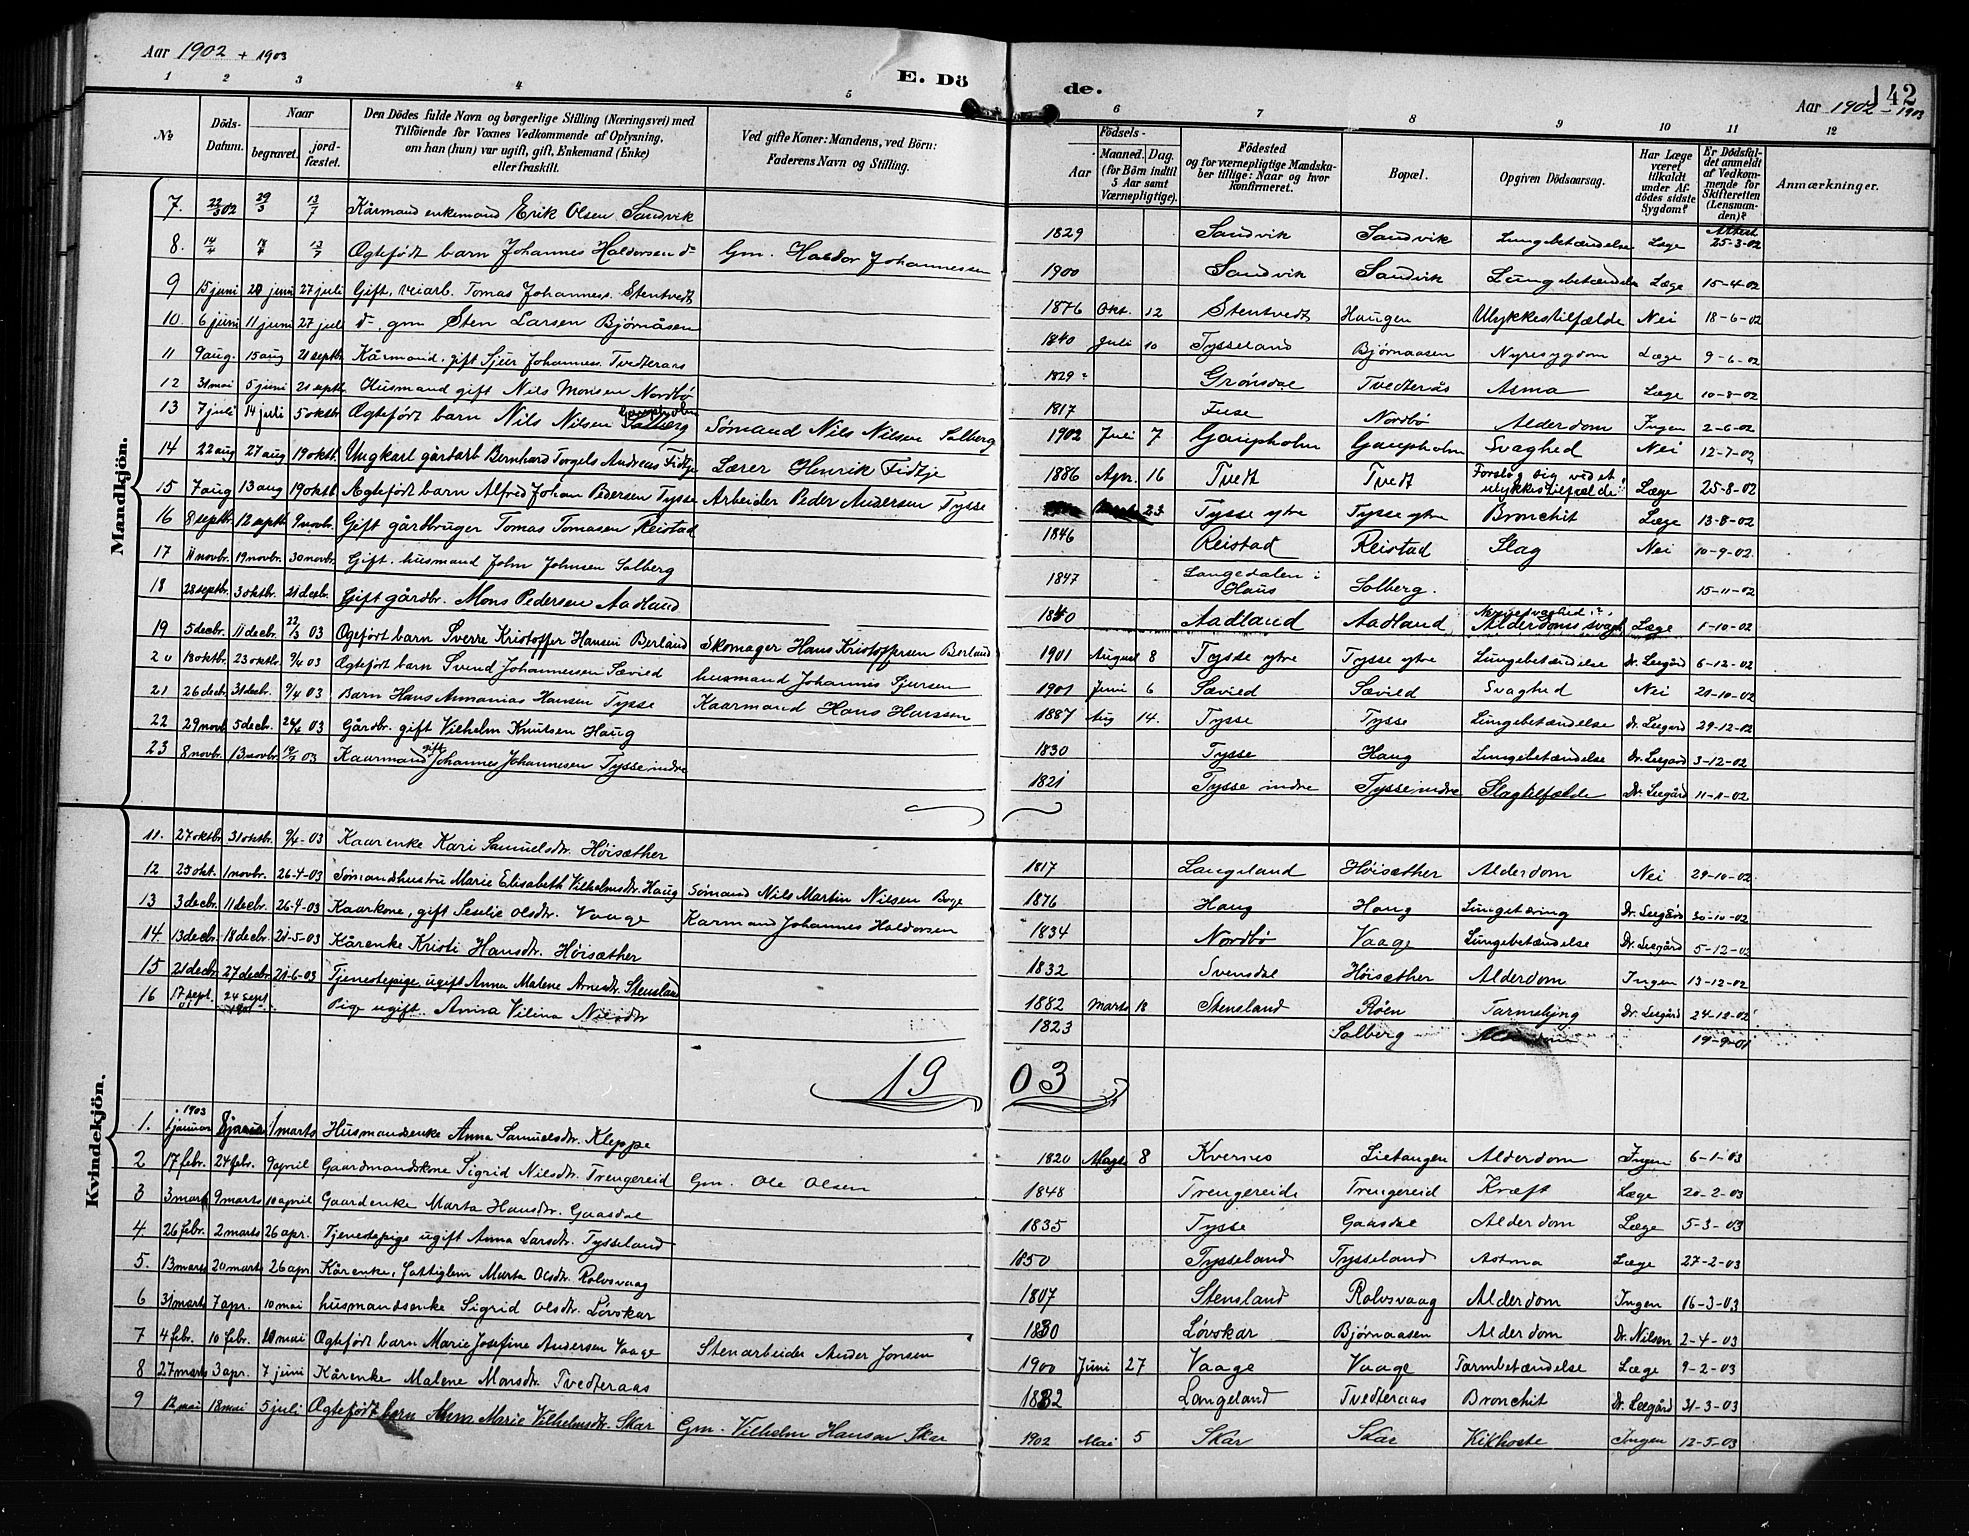 Aar 1902 + 1903
E. Dö de.
142
Aar 1902 - 1903
1 2 3 4 5 6 7 8 9 10 11 12
No
Döds-Datum.
Naar
begravet.
jord-fæstet.
Den Dödes fulde Navn og borgerlige Stilling (Næringsvei) med
Tilföiende for Voxnes Vedkommende af Oplysning,
om han (hun) var ugift, gift, Enkemand (Enke)
eller fraskilt.
Ved gifte Koner: Mandens, ved Börn:
Faderens Navn og Stilling.
Födsels-
Aar
Maaned. Dag.
(for Börn indtil
5 Aar samt
Værnepligtige).
Födested
og for værnepligtige Mandska-
ber tillige: Naar og hvor
konfirmeret.
Bopæl.
Opgiven Dödsaarsag.
Har Læge
været
tilkaldt
under Af-
dödes sidste
Sygdom?
Er Dödsfal-
det anmeldt
af Vedkom-
mende for
Skifteretten
(Lensman-
den)?
Anmærkninger.
Mandkjön.
7. 22/3 02 29/3 13/7 Kårmand enkemand Erik Olsen Sandvik 1829 Sandvik Sandvik Lungebetændelse Læge Attest 25-3-02
8. 14/4 13/7 Ægtefödt barn Johannes Haldorsen d- Gm. Haldor Johannessen 1900 Sandvik Sandvik Lungebetændelse Læge 15-4-02
9 15 juni 20 juni 27 juli Gift, veiarb. Tomas Johanness. Stentvedt 1876 Okt. 12 Stentvedt Haugen Ulykkestilfælde Nei 18-6-02
10. 6 juni 11 juni 27 juli d-, gm Sten Larsen Bjørnåsen 1840 Juli 10 Tysseland Bjørnaasen Nyresygdom Læge 9-6-02
11 9 aug. 15 aug 21 septbr. Kårmand. gift Sjur Johanness. Tvedteraas 1829 Grønsdal Tvedterås Asma Læge 10-8-02
12 31 mai 5 juni 21 septb. Husmand gift Nils Monsen Nordbø 1817 Fuse Nordbø Alderdom Ingen 2-6-02
13 7 juli 14 juli 5 oktbr. Ægtefödt barn Nils Nilsen Solberg Gaupholm Sømand Nils Nilsen Solberg 1902 Juli 7 Gaupholm Gaupholm Svaghed Nei 12-7-02
14 22 aug 27 aug 19 oktb. Ungkarl gårdarb Bernhard Torgels Andreas Fidtje Lærer Henrik Fidtje 1886 Apr. 16 Tvedt Tvedt Forslog sig ved et ulykkestilfælde Læge 25-8-02
15 7 aug 13 aug 19 oktb. Ægtefödt barn Alfred Johan Pedersen Tysse Arbeider Peder Andersen Tysse 23 Tysse ytre Tysse ytre Bronchit Læge 13-8-02
16 8 septbr 12 septb 9 novbr. Gift gårdbruger Tomas Tomasen Reistad 1846 Reistad Reistad Slag Nei 10-9-02
17 11 novbr. 19 novbr. 30 novbr. Gift. husmand John Johnsen Solberg 1847 Langedalen i Haus Solberg. 15-11-02
18 28 septbr. 3 oktbr. 21 decbr. Gift gårdbr. Mons Pedersen Aadland 1840 Aadland Aadland Nervesvaghed Alderdoms svagh Læge 1-10-02
19 5 decbr. 11 decbr. 22/3 03 Ægefört barn Sverre Kristoffer Hansen Berland Skomager Hans Kristoffersen Berland 1901 August 8 Tysse ytre Tysse ytre Lungebetændelse Dr. Leegård 6-12-02
20 18 oktbr. 23 oktbr. 9/4 03 Ægtefödt barn Svend Johannessen Sævild husmand Johannes Sjursen 1901 Juni 6 Sævild Sævild Svaghed Nei 20-10-02
21 26 decbr. 31 decbr. 9/4 03 Barn Hans Annanias Hansen Tysse Kaarmand Hans Hanssen 1887 Aug 14. Tysse Tysse Lungebetændelse Dr. Leegård 29-12-02
22 29 novb. 5 decbr. 26/4 03 Gårdbr. gift Vilhelm Knutsen Haug 1830 Tysse Haug Lungebetændelse Dr. Leegård 3-12-02
23 8 novbr. 13 novbr. 03 Kaarmand gift Johannes Johannesen Tysse indre 1821 Tysse indre Tysse indre Slagtilfælde Dr. Leegård 11-11-02
Kvindekjön.
11. 27 oktbr. 31 oktbr. 9/4-03 Kaarenke Kari Samuelsdtr. Høisæther 1817 Langeland Høisæther Alderdom Nei 29-10-02
12 25 okt. 1 novbr. 26-4-03 Sømandshustru Marie Elisabeth Vilhelmsdtr. Haug Sömand Nils Martin Nilsen Boge 1876 Haug Haug Lungetæring Dr. Leegård 30-10-02
13 3 decbr. 11 decbr. 26-4-03 Kaarkone, gift Seselie Olsdtr. Vaage Karmand Johannes Haldorsen 1834 Nordbø Vaage Lungebetændelse Dr. Leegård 5-12-02
14. 13 decbr. 18 decbr. 21-5-03 Kårenke Kristi Hansdtr. Høisæther 1832 Svensdal Høisæther Alderdom Ingen 13-12-02
15 21 decbr. 27 decbr. 21-6-03 Tjenestepige ugift Anna Malene Arnesdtr. Stensland 1882 Marts 18 Stensland Røen Tarmslyng Dr. Leegård 24-12-02
16 17 sept. 01 24 sept 1901 Pige ugift. Anna Vilina Nilsdtr 1823 Solberg Alderdom 19-9-01
1903
1. 1903 1 januar 8 januar 1 marts Husmandsenke Anna Samuelsdtr. Kleppe 1820 8 Kvernes Lietangen Alderdom Ingen 6-1-03
2 17 febr. 24 febr. 9 april Gaardmandskone Sigrid Nilsdtr. Trengereid Gm. Ole Olsen 1848 Trengereide Trengereid Kræft Læge 20-2-03
3 3 marts 9 marts 10 april Gaardenke Marta Hansdtr. Gaasdal 1835 Tysse Gaasdal Alderdom Læge 5-3-03
4. 26 febr. 2 marts 26 apr. Tjenestepige ugift Anna Larsdtr. Tysseland 1850 Tysseland Tysseland Astma Læge 27-2-03
5. 13 marts 20 marts 26 apr Kårenke, fattiglem Marta Olsdtr. Rolvsvaag 1807 Stensland Rolvsvaag Alderdom Ingen 16-3-03
6 31 marts 7 apr. 10 mai husmandsenke Sigrid Olsdtr. Løvskar 1830 Løvskar Bjørnaasen Alderdom Dr. Nilsen 2-4-03
7 4 febr. 10 febr. mai Ægtefödt barn Marie Josefine Andersen Vaage Stenarbeider Ander Jonsen 1900 Juni 27 Vaage Vaage Tarmbetændelse Læge 9-2-03
8 27 marts 3 apr. 7 juni Kårenke Malene Monsdtr. Tvedteraas 1832 Langeland Tvedteraas Bronchit Dr. Leegård 31-3-03
9 12 mai 18 mai 5 juli Ægtefödt barn Anna Marie Vilhelmsdtr. Skar Gm. Vilhelm Hansen Skar 1902 Mai 5 Skar Skar Kikhoste Ingen 12-5-03